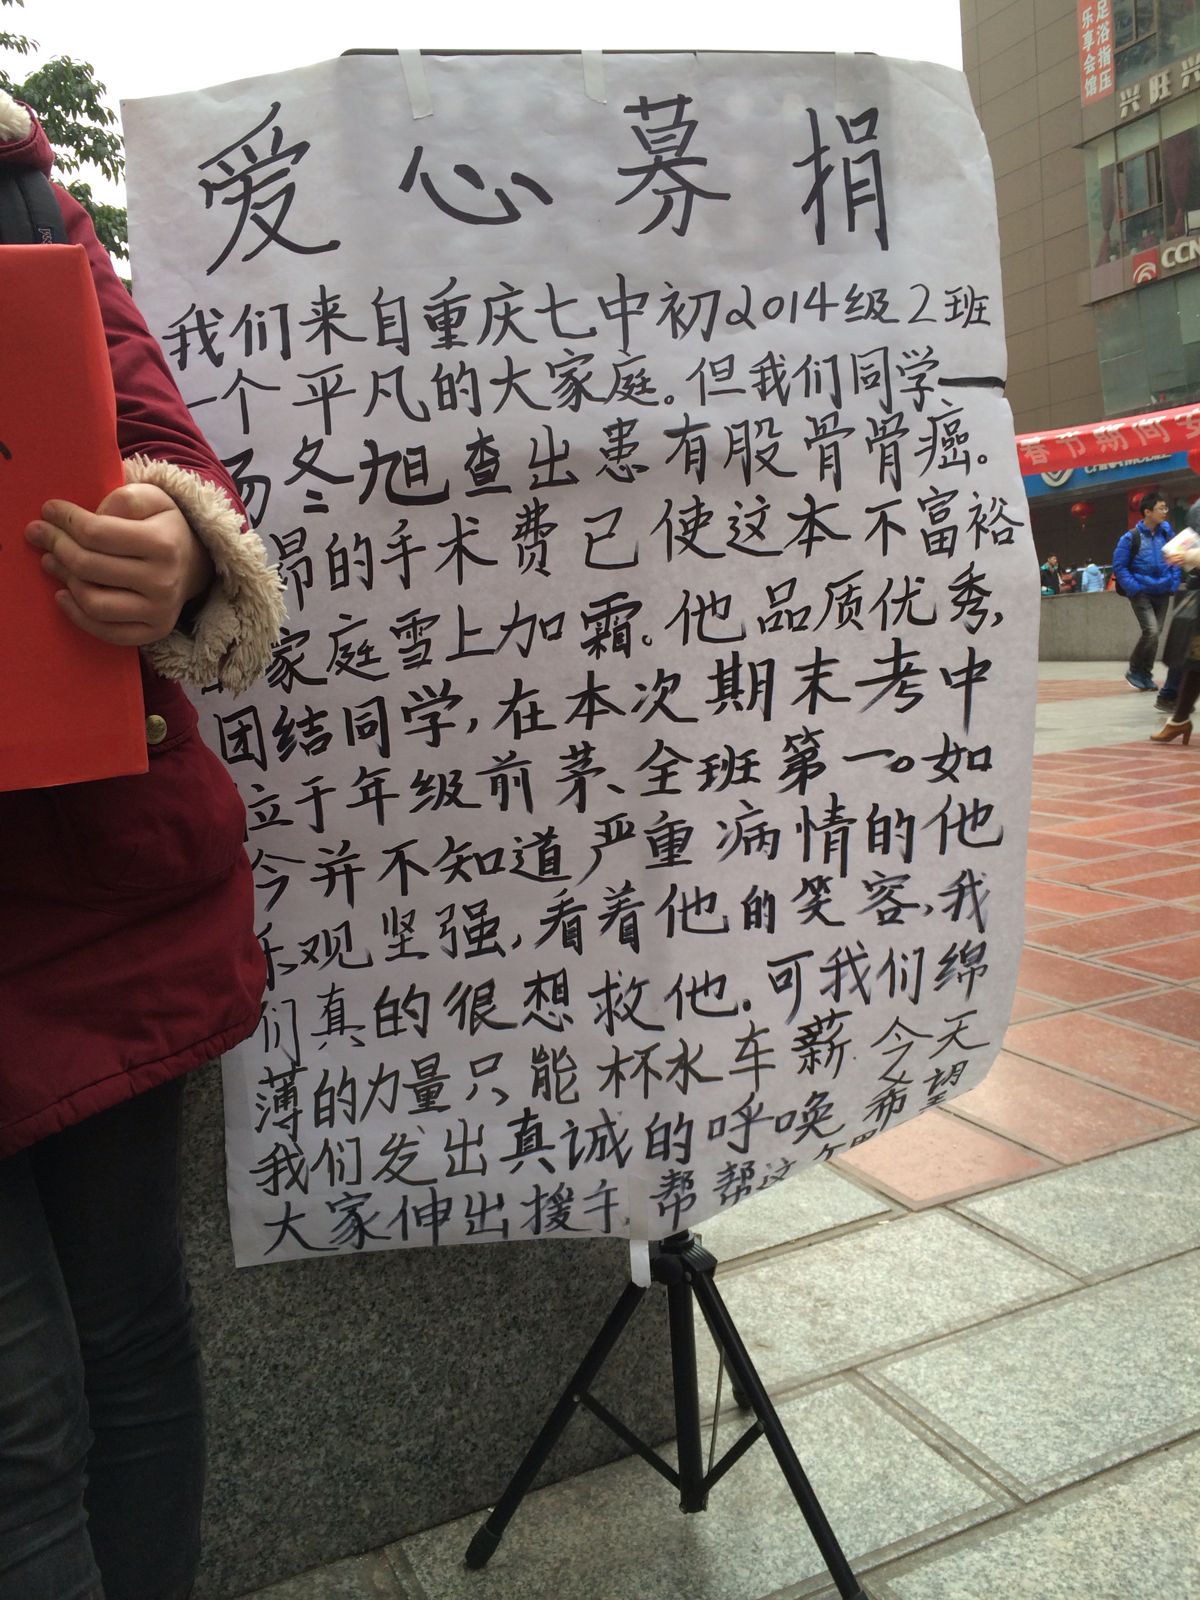 爱心募捐
我们来自重庆七中初2014级2班
一个平凡的大家庭。但我们同学——
冬旭查出患有股骨骨癌。
昂的手术费已使这本不富裕
家庭雪上加霜。他品质优秀,
团结同学,在本次期末考中
立于年级前茅、全班第一。如
今并不知道严重病情的他
乐观坚强,看着他的笑容,我
们真的很想救他.可我们绵
薄的力量只能杯水车薪.今天
我们发出真诚的呼唤 希望
大家伸出援手.帮帮这
足浴指压
乐享会馆
兴旺
CCN
春节
CHINA MOBILE